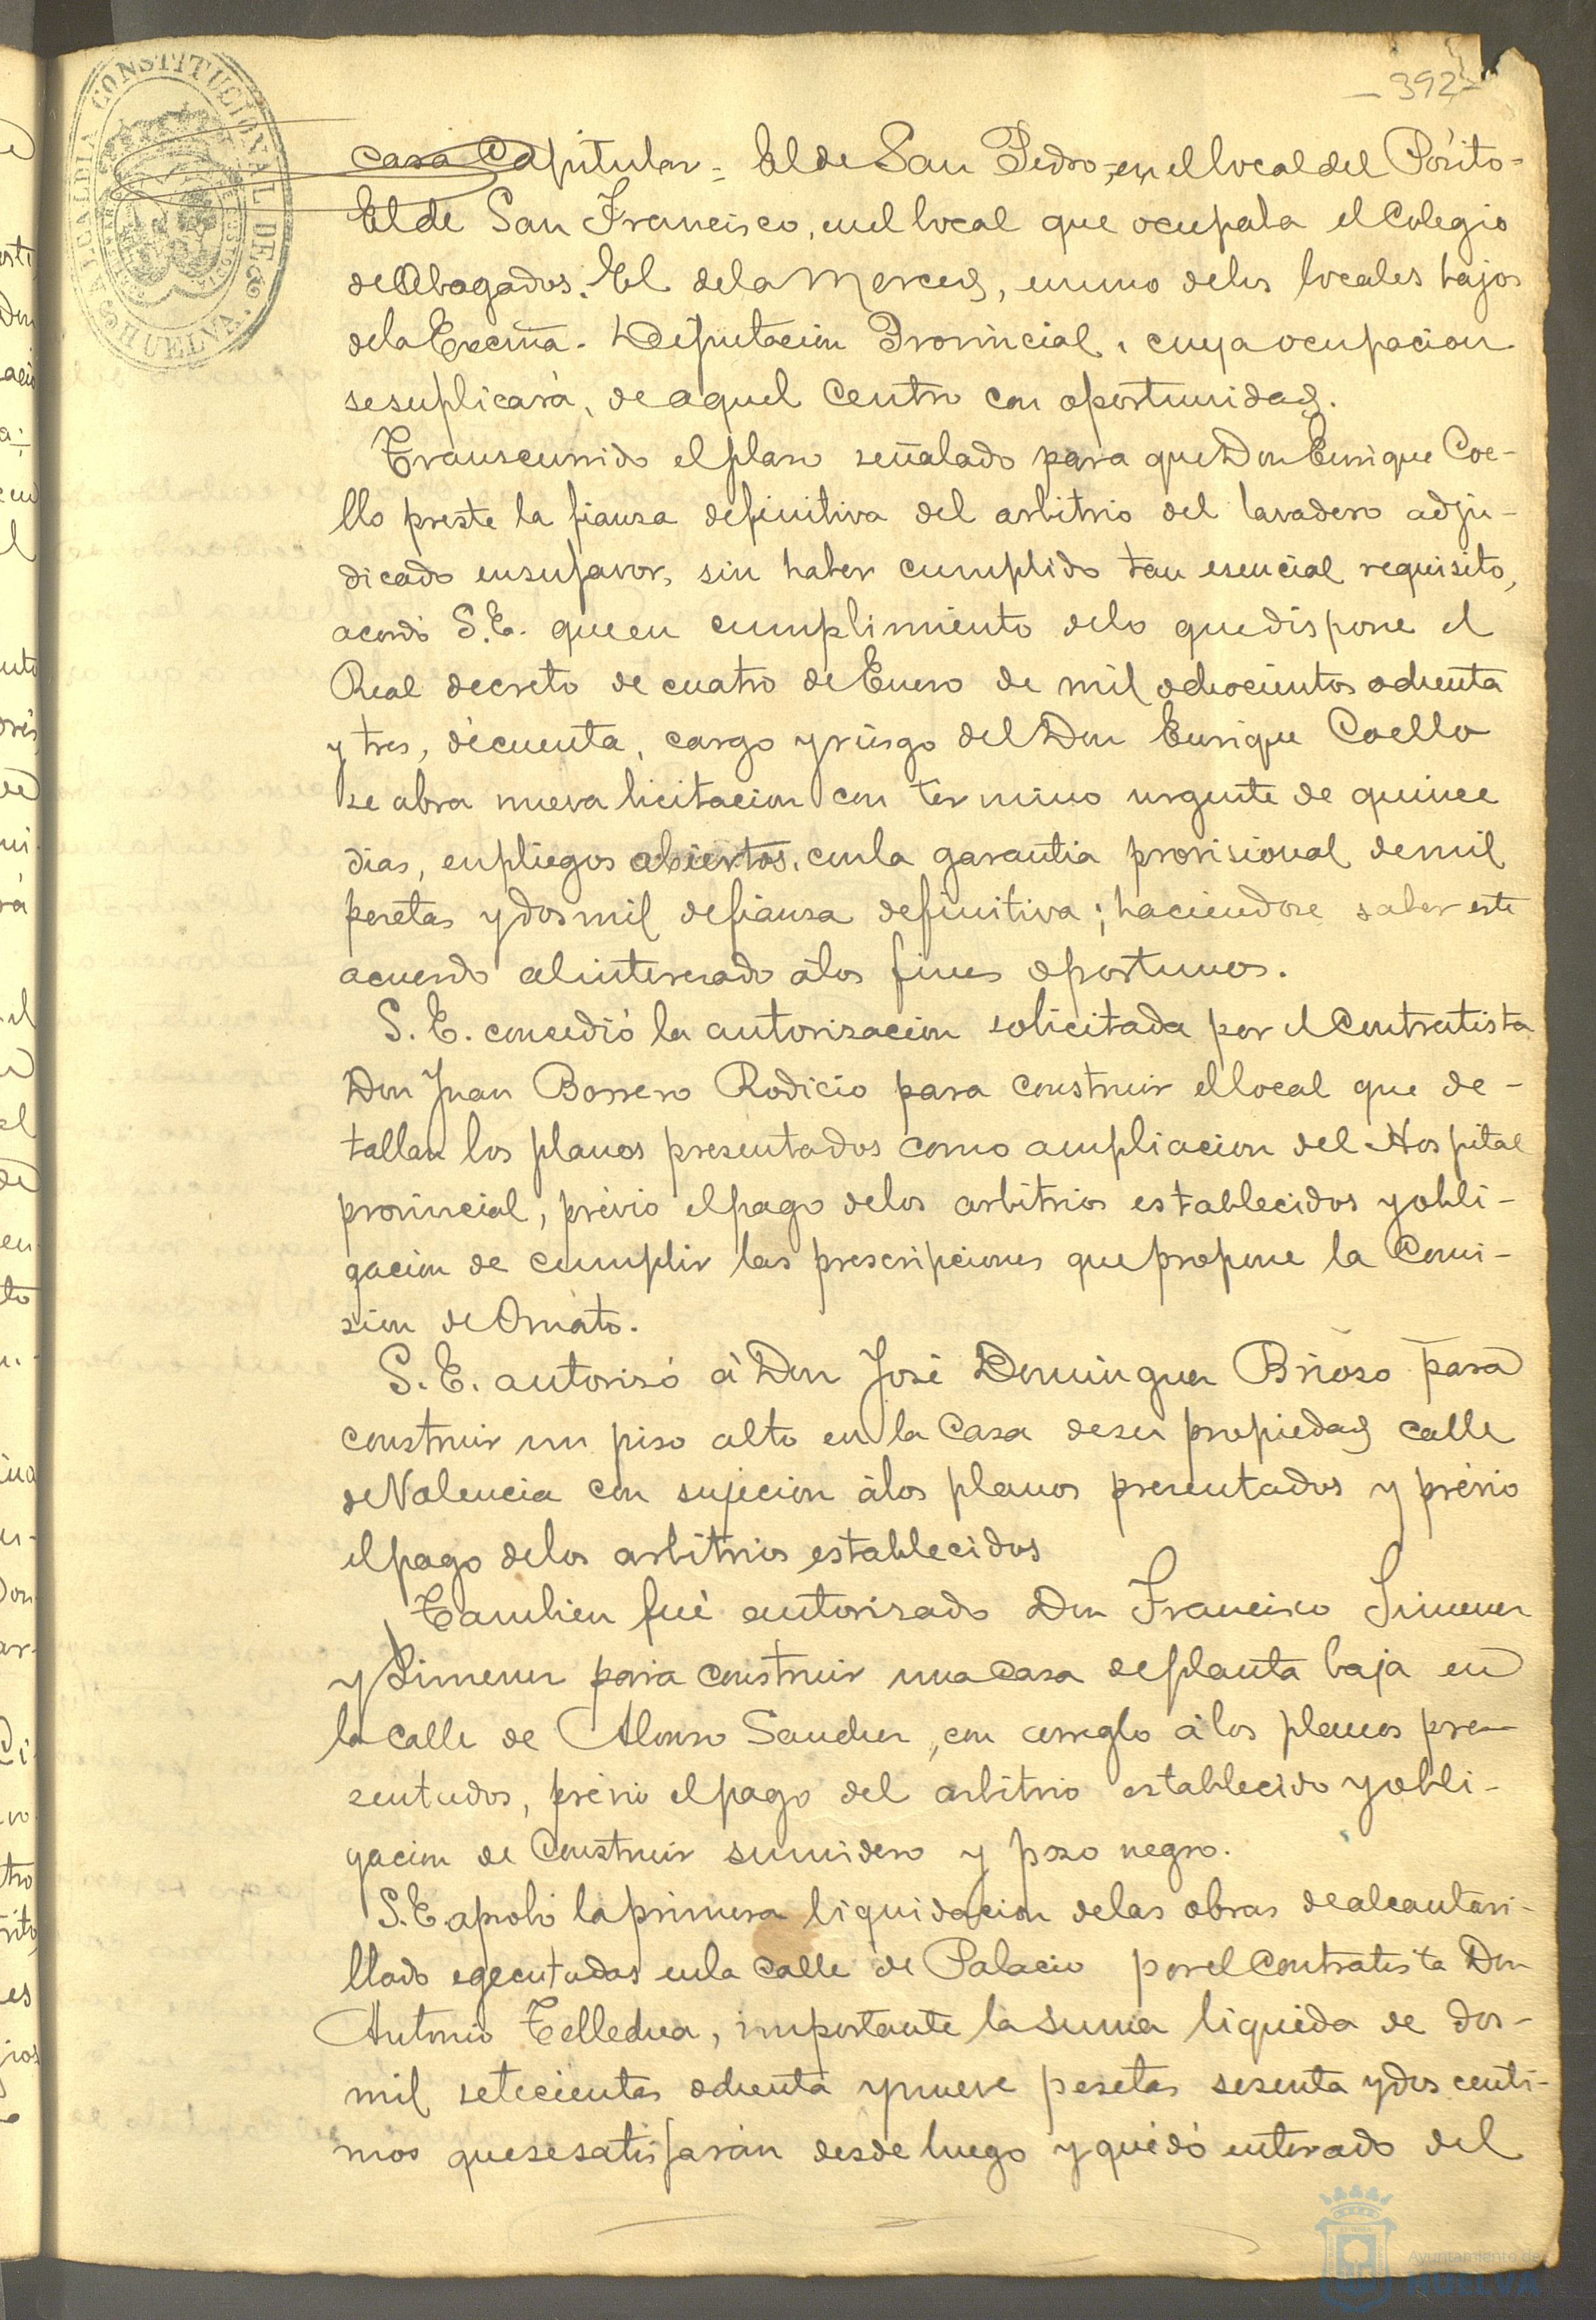 -392-
ALCALDIA CONSTITUCIONAL DE HUELVA.
casa Capitular = El de San Pedro, en el local del Pósito =
El de San Francisco, en el local que ocupaba el Colegio
de Abogados. El de la Merced, en uno de los locales bajos
de la Excmâ. Diputacion Provincial, cuya ocupacion
se suplicará, de aquel Centro con oportunidad.
Transcurrido el plaso señalado para que Don Enrique Coe-
llo preste la fiansa definitiva del arbitrio del lavadero adju-
dicado en su favor, sin haber cumplido tan esencial requisito,
acordó S.E. que en cumplimiento de lo que dispone el
Real decreto de cuatro de Enero de mil ochocientos ochenta
y tres, de cuenta, cargo y riesgo del Don Enrique Coello
se abra nueva licitacion con término urgente de quince
dias, en pliegos abiertos, con la garantia provisional de mil
pesetas y dos mil de fiansa definitiva; haciendose saber este
acuerdo al interesado á los fines oportunos.
S. E. concedió la autorisacion solicitada por el Contratista
Don Juan Borrero Rodicio para construir el local que de-
tallan los planos presentados como ampliacion del Hospital
provincial, prévio el pago de los arbitrios establecidos y obli-
gacion de cumplir las prescripciones que propone la Comi-
sion de Ornato.
S. E. autorisó á Don José Dominguez Brioso para
construir un piso alto en la Casa de su propiedad calle
de Valencia con sujecion á los planos presentados y prévio
el pago de los arbitrios establecidos
Tambien fué autorisado Don Francisco Jimenez
y Jimenez para construir una casa de planta baja en
la calle de Alonso Sanchez, con arreglo á los planos pre-
sentados, prévio el pago del arbitrio establecido y obli-
gacion de Construir sumidero y poso negro.
S. E. aprobó la primera liquidacion de las obras de alcantari-
llado egecutadas en la calle de Palacio por el Contratista Don
Antonio Tellechea, importante la suma liquida de dos-
mil setecientas ochenta y nueve pesetas sesenta y dos centi-
mos que se satisfarán desde luego y quedó enterado del
Ayuntamiento de
HUELVA